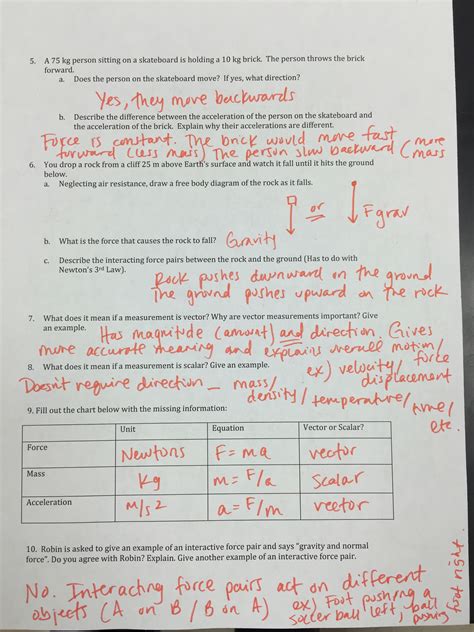 5. A 75 kg person sitting on a skateboard is holding a 10 kg brick. The person throws the brick
forward.
a. Does the person on the skateboard move? If yes, what direction?
Yes, they move backwards
b. Describe the difference between the acceleration of the person on the skateboard and
the acceleration of the brick. Explain why their accelerations are different.
Force is constant. The brick would move fast
forward (less mass) The person slow backward (more
mass
6. You drop a rock from a cliff 25 m above Earth's surface and watch it fall until it hits the ground
below.
a. Neglecting air resistance, draw a free body diagram of the rock as it falls.
or
Fgrav
b. What is the force that causes the rock to fall? Gravity
c. Describe the interacting force pairs between the rock and the ground (Has to do with
Newton's 3rd Law).
Rock pushes downward on the ground
The ground pushes upward on the rock
7. What does it mean if a measurement is vector? Why are vector measurements important? Give
an example. Has magnitude (amount) and direction. Gives
more accurate meaning and explains overall motion/
ex) velocity/ force
displacement
8. What does it mean if a measurement is scalar? Give an example.
Doesn't require direction – mass/
density/ temperature/ time/
etc.
9. Fill out the chart below with the missing information:
Unit Equation Vector or Scalar?
Force Newtons F=ma vector
Mass kg m=F/a scalar
Acceleration m/s2 a=F/m vector
10. Robin is asked to give an example of an interactive force pair and says "gravity and normal
force". Do you agree with Robin? Explain. Give another example of an interactive force pair.
No. Interacting force pairs act on different
objects (A on B / B on A) ex) Foot pushing a
soccer ball left, ball
pushing foot right.